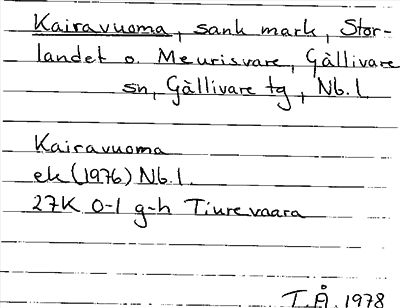 Kairavuoma, sank mark, Stor-
landet o. Meurisvare, Gällivare
sn, Gällivare tg, Nb. l
Kairavuoma
ek (1976) Nb. l.
27K 0-1 g-h Tiurevaara
T. Å. 1978